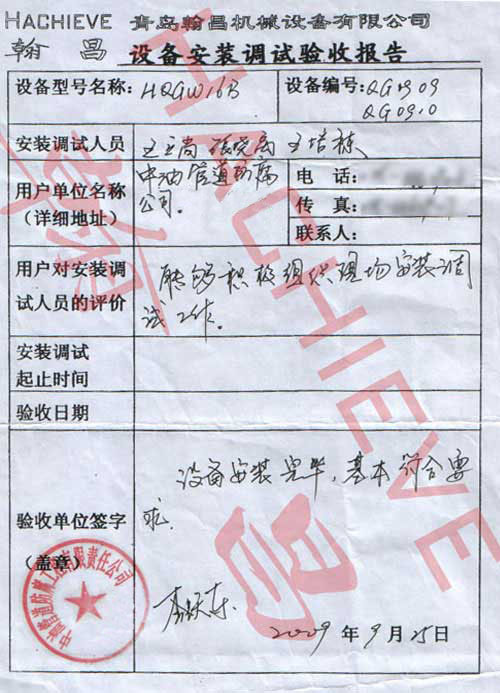 HACHIEVE 青岛翰昌机械设备有限公司
翰昌 设备安装调试验收报告
设备型号名称: HQGW16B 设备编号: QG0909
QG0910
安装调试人员
用户单位名称
(详细地址)
中油管道防腐
公司.
电 话:
传 真:
联系人:
用户对安装调
试人员的评价
能够积极组织现场安装调
试工作.
安装调试
起止时间
验收日期
验收单位签字
(盖章)
设备安装完毕,基本符合要
求.
2009 年 9 月 25 日
HACHIEVE
翰昌